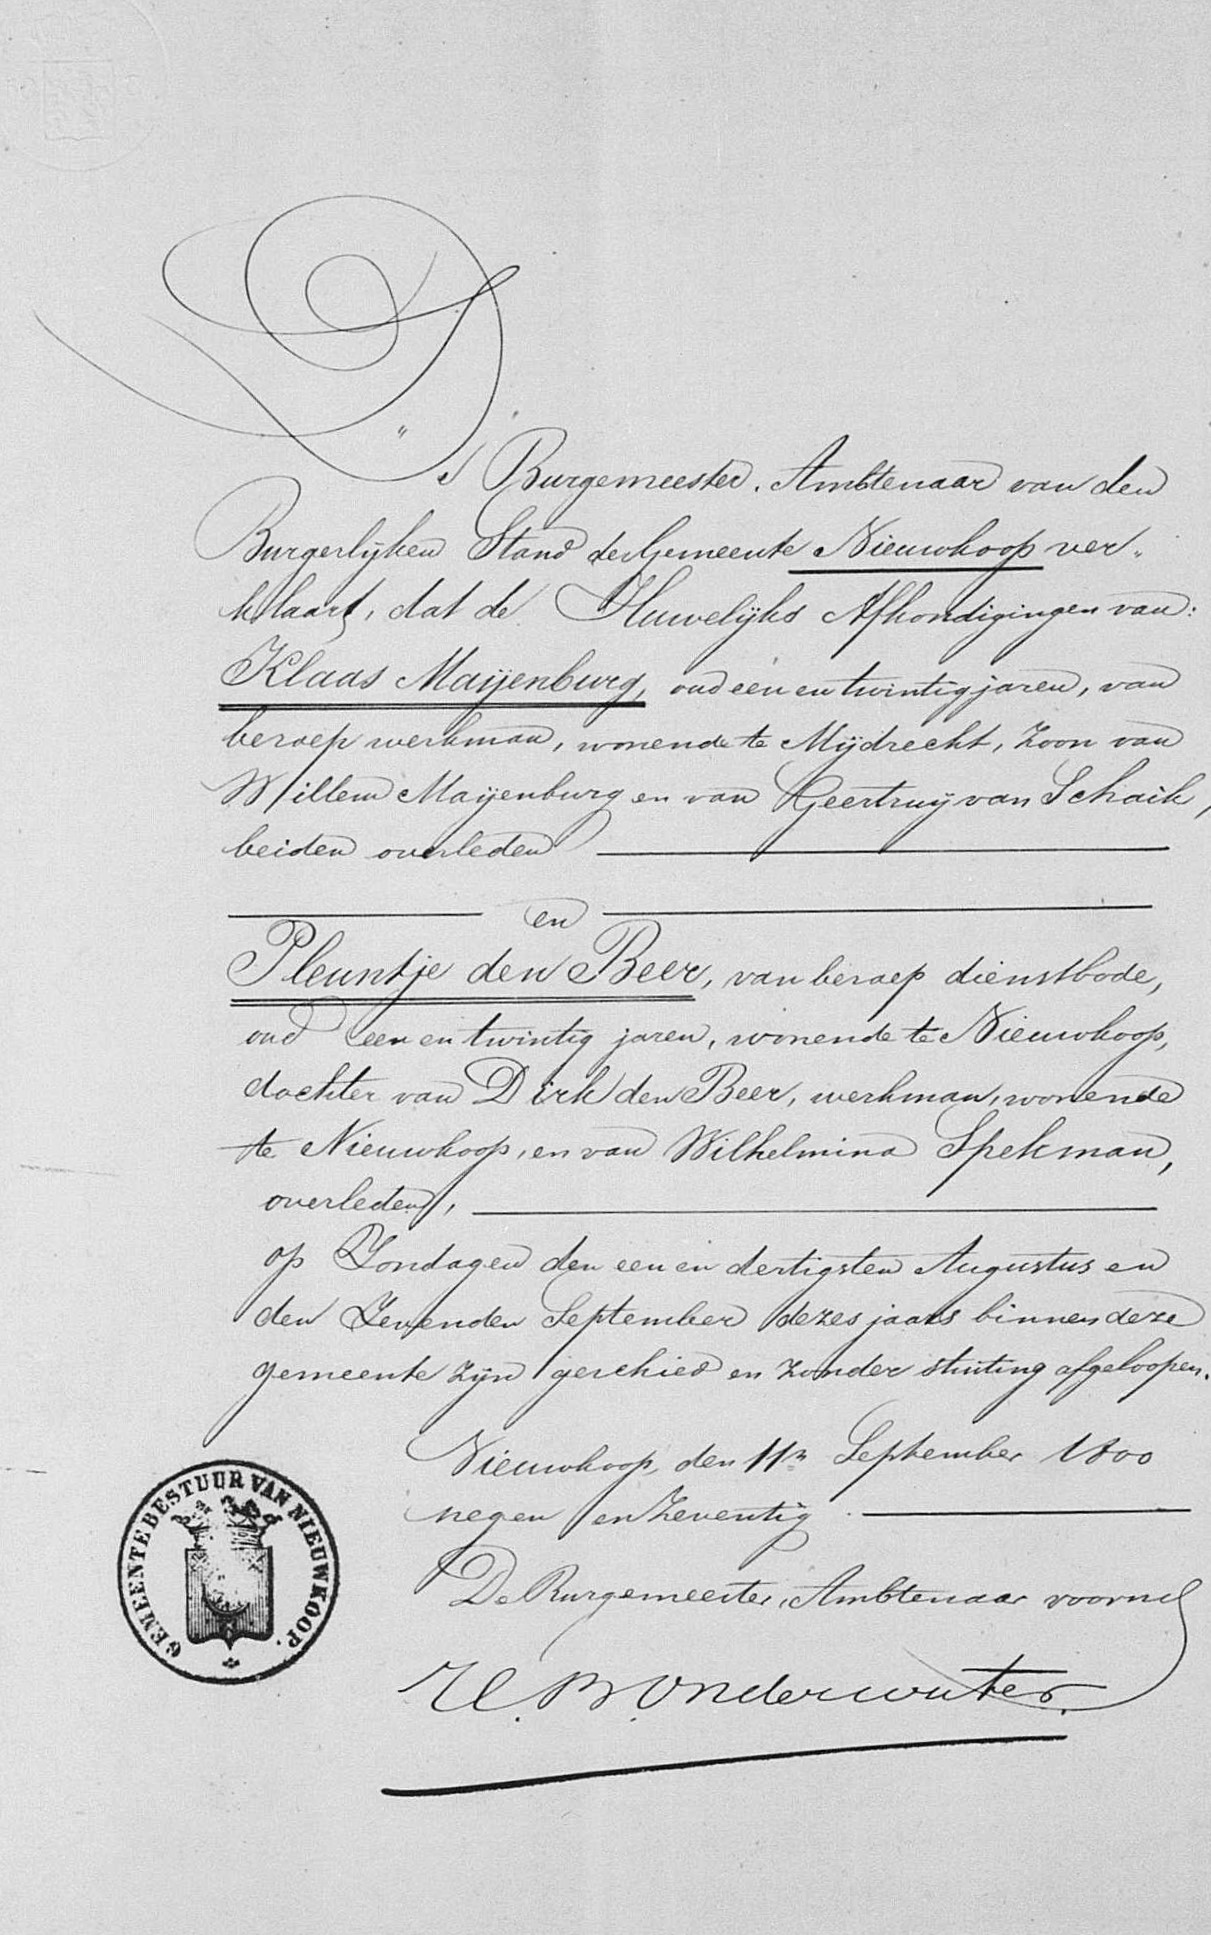 De Burgemeester, Ambtenaar van den
Burgerlijken Stand der Gemeente Nieuwkoop ver-
klaart, dat de Huwelijks Afkondigingen van:
Klaas Maijenburg, oud een en twintig jaren, van
beroep werkman, wonende te Mijdrecht, Zoon van
Willem Maijenburg en van Geertruij van Schaik,
beiden overleden
en
Pleuntje den Beer, van beroep dienstbode,
oud een en twintig jaren, wonende te Nieuwkoop,
dochter van Dirk den Beer, werkman, wonende
te Nieuwkoop, en van Wilhelmina Spekman,
overleden,
op Zondagen den een en dertigsten Augustus en
den Zevenden September dezes jaars binnen deze
gemeente zijn geschied en zonder stuiting afgeloopen.
Nieuwkoop, den 11n September 1800
negen en Zeventig
De Burgemeester, Ambtenaar voornd
Onderwater
GEMEENTEBESTUUR VAN NIEUWKOOP.